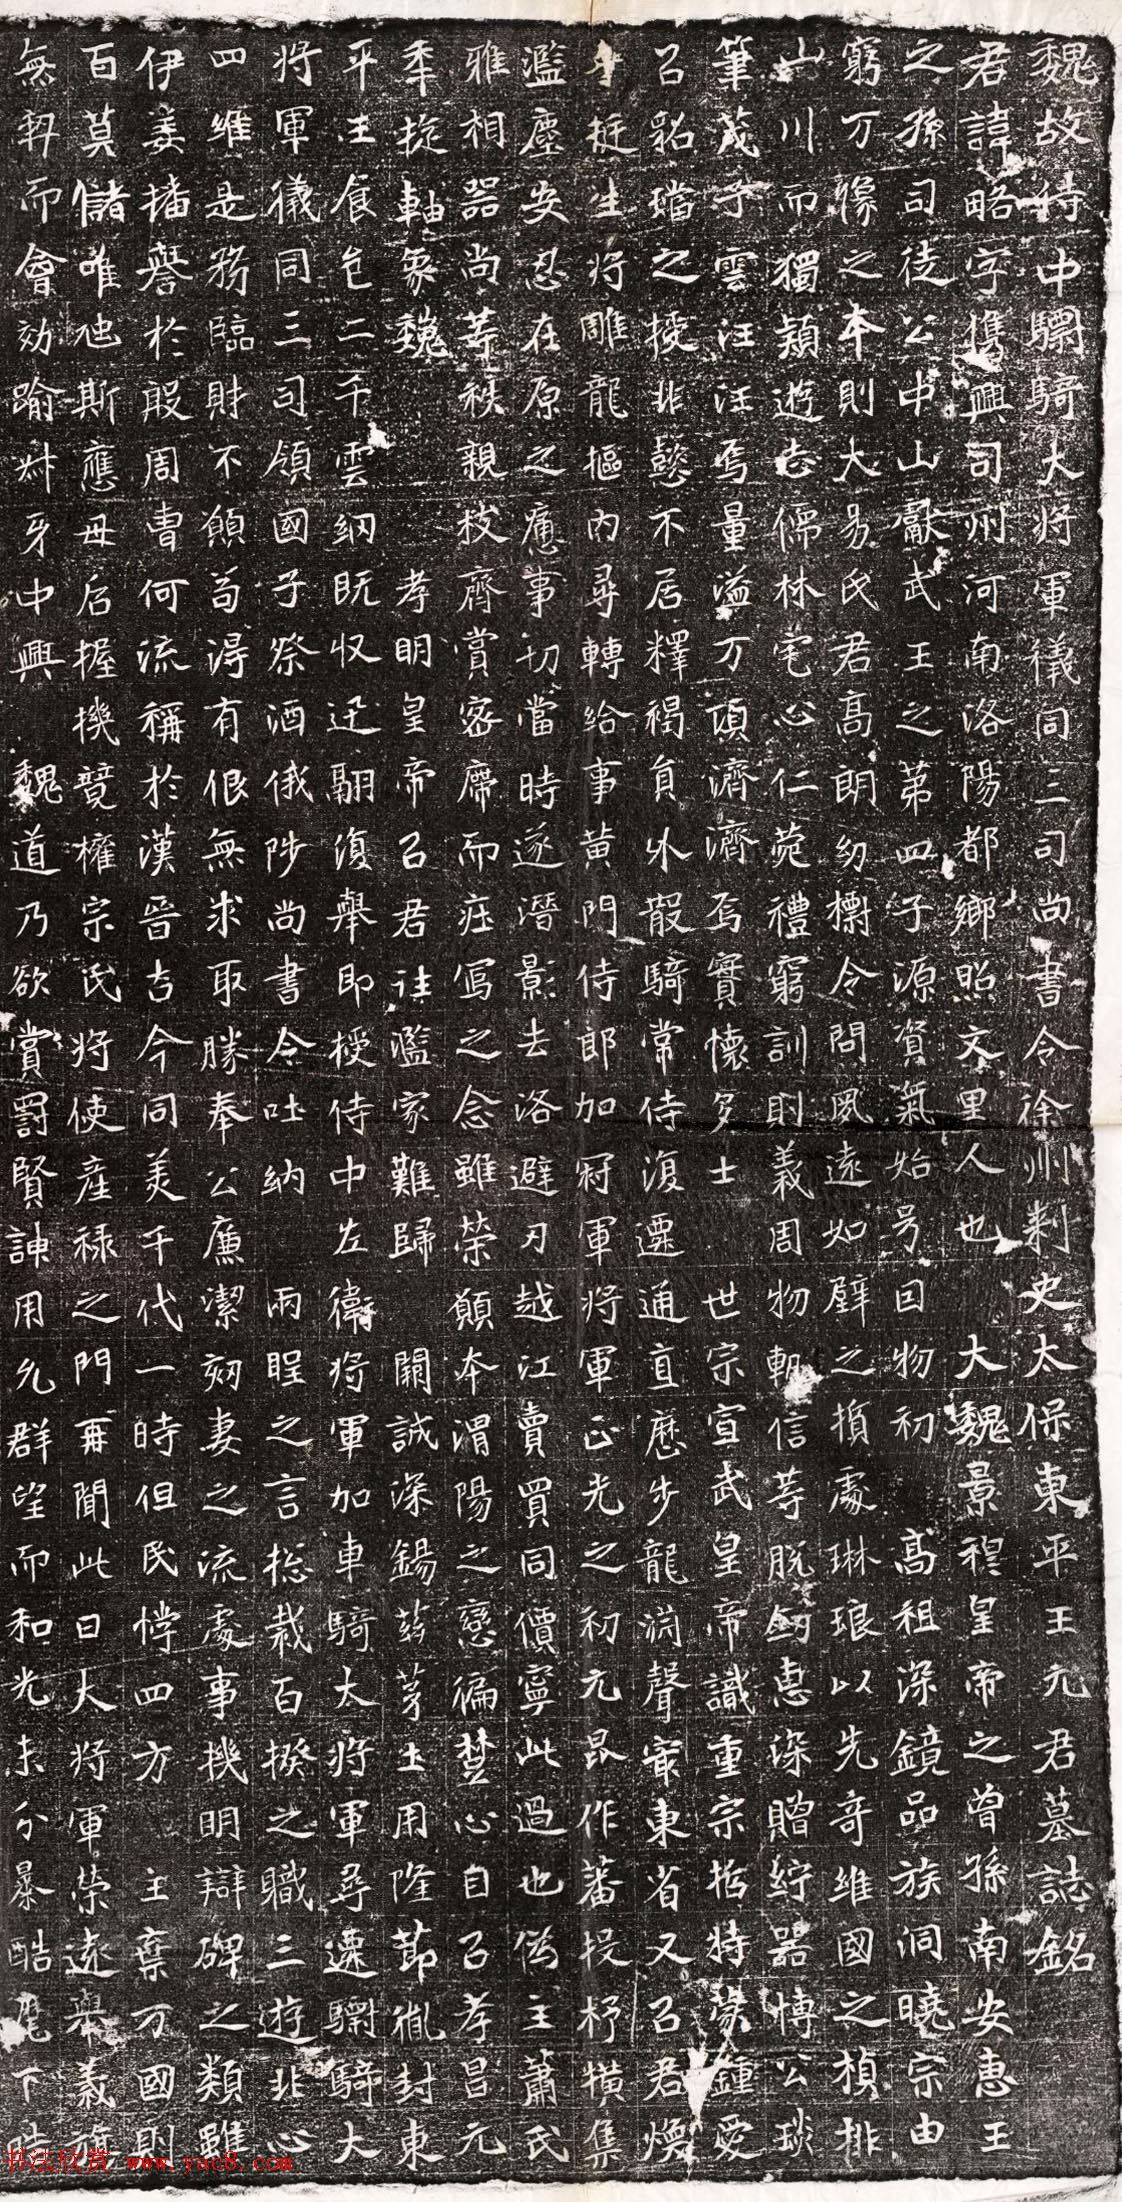 魏故侍中驃騎大將軍儀同三司尚書令徐州刺史太保東平王元君墓誌銘
君諱略字儁興司州河南洛陽都鄉照文里人也 大魏景穆皇帝之曾孫南安惠王
之孫司徒公中山獻武王之第四子源資氣始号因物初 高祖深鏡品族洞曉宗由
窮万像之本則大易氏君高朗幼標令問夙遠如璧之損處琳琅以先奇維國之楨排
山川而獨穎遊志儒林宅心仁菀禮窮訓則義周物軌信等脫劒惠深贈紵器博公琰
筆茂子雲汪汪焉量溢万頃濟濟焉實懷多士 世宗宣武皇帝識重宗哲特蒙鍾愛
以貂璫之授非懿不居釋褐員外散騎常侍復遷通直歷步龍淵聲寵東省又以君煥
挺生將雕龍樞內尋轉給事黃門侍郎加冠軍將軍正光之初元昆作蕃投杼橫集
濫塵安忍在原之應事切當時遂潛影去洛避刃越江賣買同價寧此過也偽主蕭氏
雅相器尚等秩親枝齊賞密席而莊寫之念雖榮願本渭陽之戀偏楚心自以孝昌元
年旋軸象魏 孝明皇帝以君往濫家難歸闕誠深錫茲茅土用隆節胤封東
平王食邑二千雲網既收逆翮復舉即授侍中左衛將軍加車騎大將軍尋遷驃騎大
將軍儀同三司領國子祭酒俄陟尚書令吐納 兩聖之言揔裁百揆之職三遊北心
四維是務臨財不願苟得有恨無求取勝奉公廉潔芻妻之流處事機明辯碑之類雖
伊姜播譽於殷周曹何流稱於漢晉古今同美千代一時但民悖四方 主棄万國則
百莫儲唯虵斯應母后握機競權宗氏將使產祿之門再聞此日大將軍榮遠舉義旗
無契而會効踰叔牙中興 魏道乃欲賞罰賢諫用允群望而和光未分暴酷麾下
书法欣赏 www.yac8.com